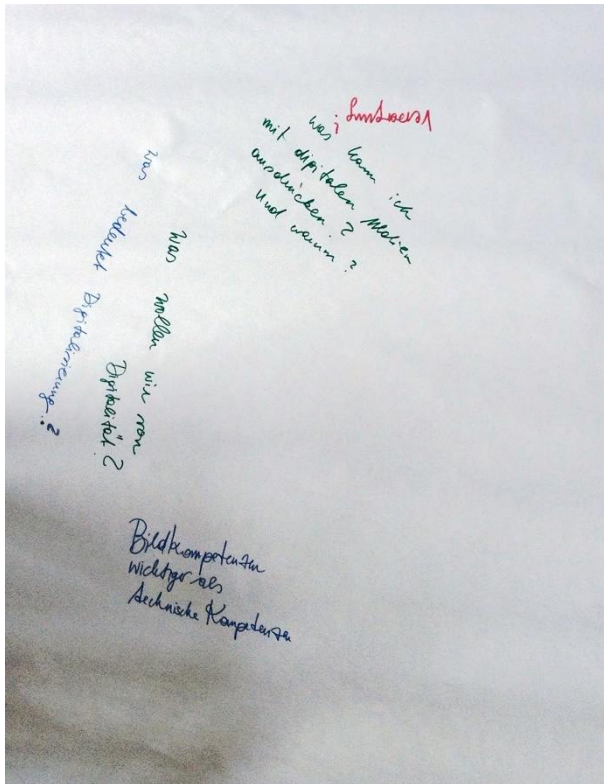 was kann ich
mit digitalen Medien
ausdrücken?
Und warum?
Was bedeutet Digitalisierung?
Was wollen wir von
Digitalität?
Bildkompetenzen
wichtiger als
technische Kompetenzen